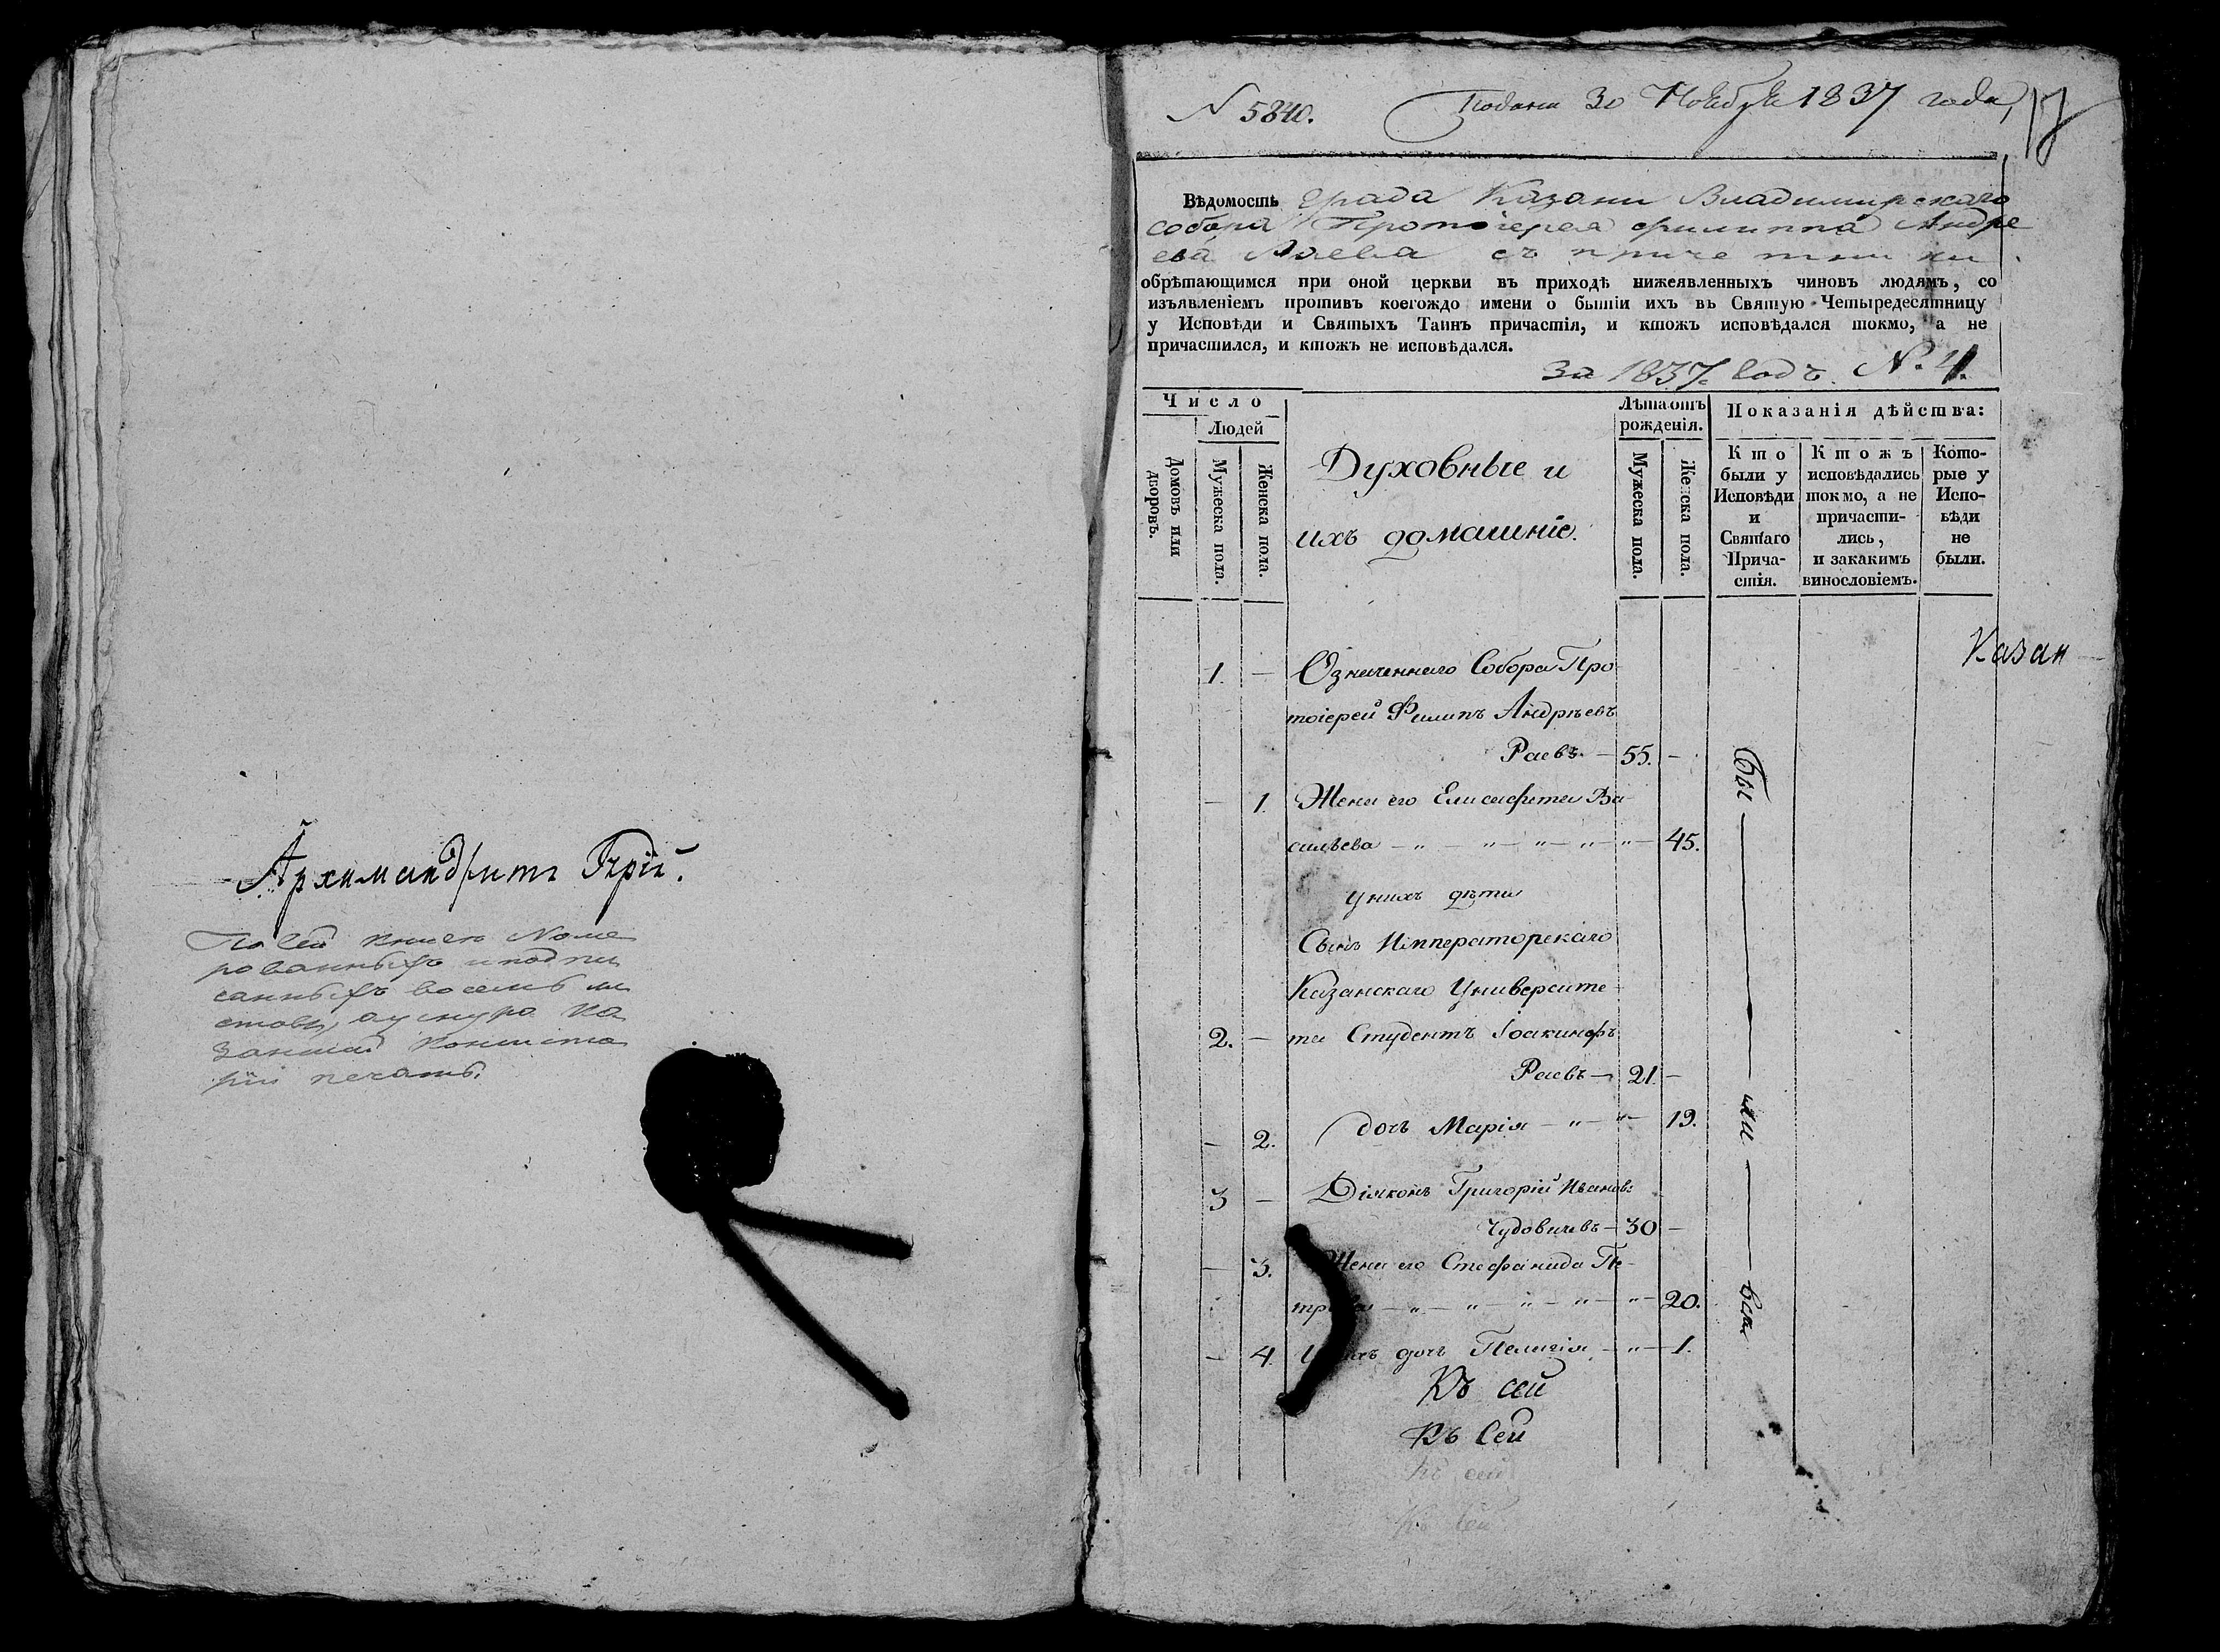 Архимандритъ Гурій.
По сей книге Номе
рованныхъ и подпи
санныхъ восемь ли
стовъ, а у шнура Ка
занской Консисто
ріи печать.
N 5840. Подана 30 Ноября 1837 года,
Вѣдомость Града Казани Владимирскаго
собора Протоіерея Филиппа Андре
ева Раева съ причетники
обрѣтающимся при оной церкви въ приходѣ нижеявленныхъ чиновъ людямъ, со
изъявленіемъ противъ коегождо имени о бытіи ихъ въ Святую Четыредесятницу
у Исповѣди и Святыхъ Таинъ причастія, и ктожъ исповѣдался токмо, а не
причастился, и ктожъ не исповѣдался.
за 1837 годъ. N. 4.
Число
Людей
Домовъ или дворовъ.
Мужеска пола.
Женска пола.
Духовные и
ихъ домашніе.
Лѣта отъ рожденія.
Мужеска пола.
Женска пола.
Показанія дѣйства:
Кто были у Исповѣди и Святаго Причастія.
Ктожъ исповѣдались токмо, а не причастились, и закакимъ винословіемъ.
Которые у Исповѣди не были.
Казан
1. — Означеннаго Собора Про
тоіерей Филипъ Андрѣевъ
Раевъ — 55. —
— 1. Жена его Елисавета Ва-
сильева — „ — „ — „ — „ — „ — 45.
У нихъ дѣти
Сынъ Императорскаго
Казанскаго Университе-
2. — та Студентъ Іоакинфъ
Раевъ — 21. —
— 2. дочь Марія — „ — „ — 19.
3 — Діяконъ Григорій Иванов:
Чудовичевъ — 30 —
— 3. Жена его Стефанида Пе-
трова — „ — „ — „ — „ — „ — 20.
— 4. У нихъ дочь Пелагія — „ — 1.
Бы — ли — вси
Къ сей
Къ сей
Къ сей
Къ сей